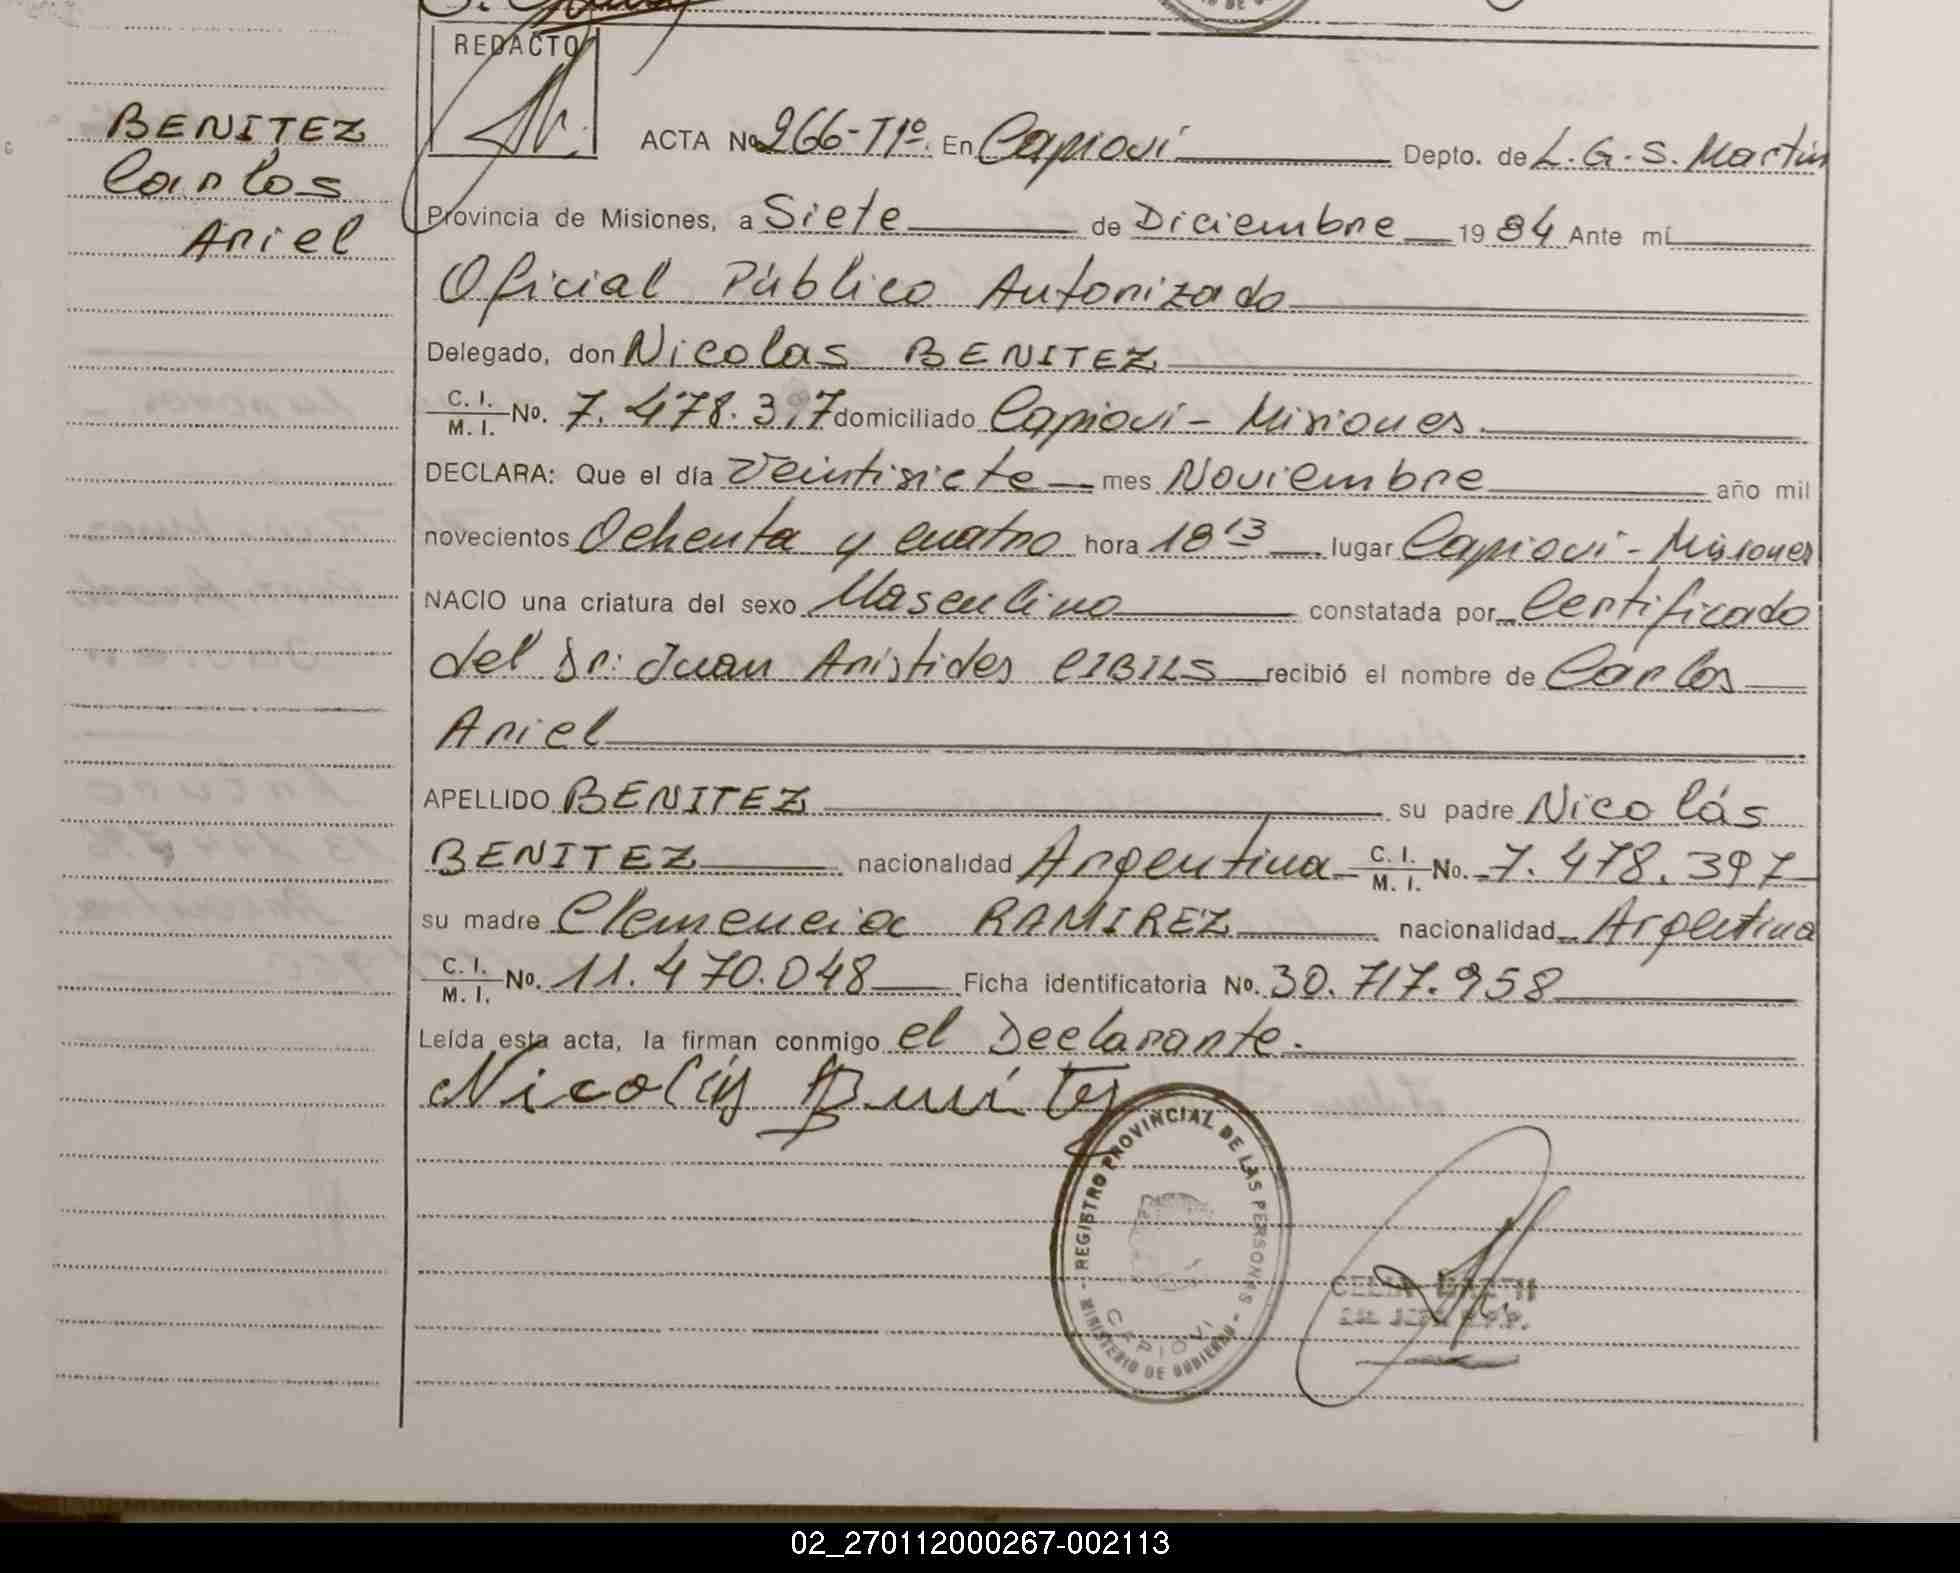 REDACTO
BENITEZ
Carlos
Ariel
ACTA No 266-T1º. En Capioví Depto. de L.G.S. Martín
Provincia de Misiones, a Siete de Diciembre 1984 Ante mí
Oficial Público Autorizado
Delegado, don Nicolas BENITEZ
C. I. / M. I. No. 7.478.397 domiciliado Capioví - Misiones.
DECLARA: Que el día Veintisiete mes Noviembre año mil
novecientos Ochenta y cuatro hora 18 13 lugar Capioví - Misiones
NACIO una criatura del sexo Masculino constatada por Certificado
del Dr: Juan Aristides CIBILS recibió el nombre de Carlos
Ariel
APELLIDO BENITEZ su padre Nicolás
BENITEZ nacionalidad Argentina C. I. / M. I. No. 7.478.397
su madre Clemencia RAMIREZ nacionalidad Argentina
C. I. / M. I. No. 11.470.048 Ficha identificatoria No. 30.717.958
Leída esta acta, la firman conmigo el Declarante.
Nicolás Benítez
REGISTRO PROVINCIAL DE LAS PERSONAS - MINISTERIO DE GOBIERNO -
CAPIOVI
02_270112000267-002113